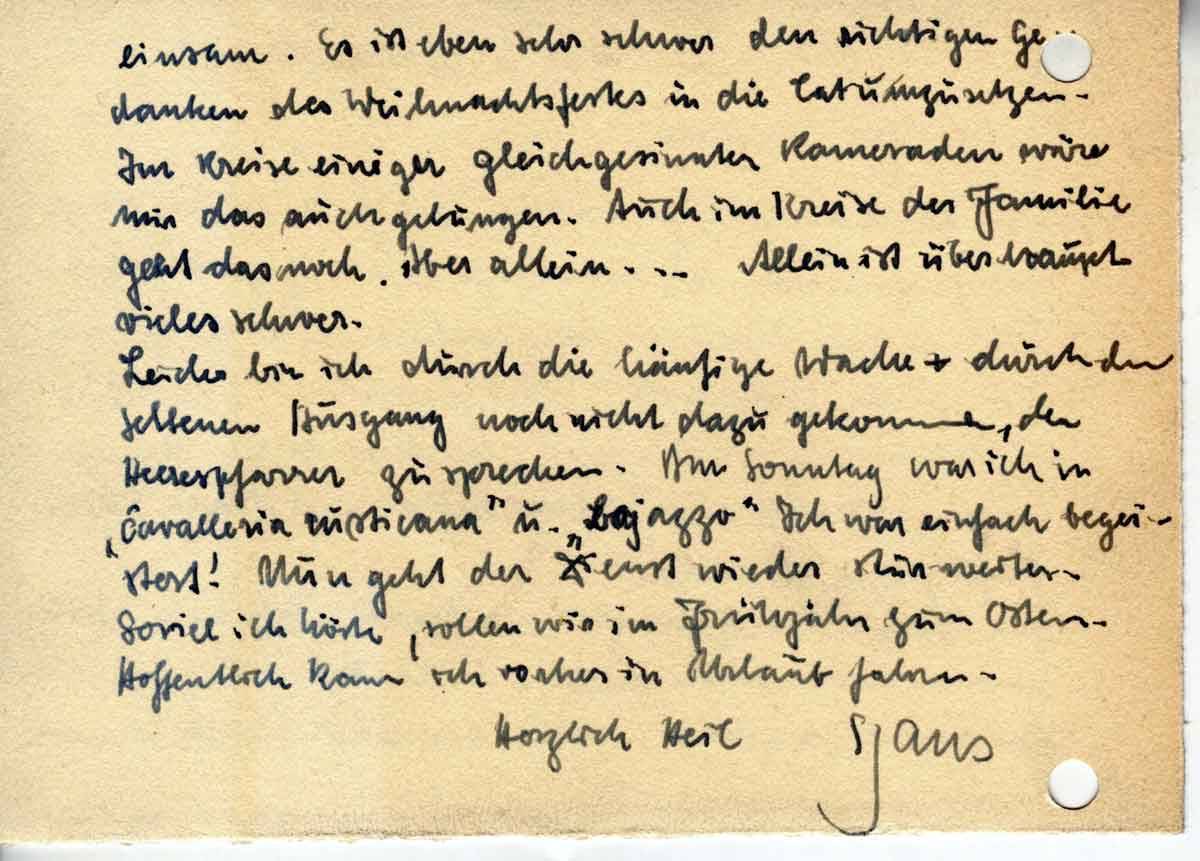 einsam. Es ist eben sehr schwer den richtigen Ge-
danken des Weihnachtsfestes in die Tat umzusetzen.
Im Kreise einiger gleichgesinnter Kameraden wäre
mir das auch gelungen. Auch im Kreise der Familie
geht das noch. Aber allein... Allein ist überhaupt
vieles schwer.
Leider bin ich durch die häufige Wache + durch den
seltenen Ausgang noch nicht dazu gekommen, den
Heerespfarrer zu sprechen. Am Sonntag war ich in
„Cavalleria rusticana" u. „Bajazzo" Ich war einfach begei-
stert! Nun geht der Dienst wieder stur weiter.
Soviel ich hörte, sollen wir im Frühjahr zum Osten.
Hoffentlich kann ich vorher in Urlaub fahren.
Herzlich Heil Hans